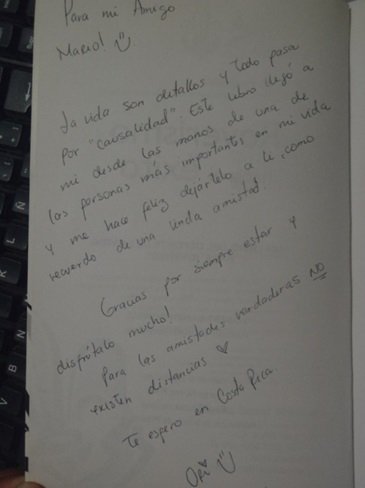 Para mi Amigo
Mario! :)
La vida son detalles y todo pasa
por "causalidad". Este libro llegó a
mi desde las manos de una de
las personas más importantes en mi vida
y me hace feliz dejártelo a ti, como
recuerdo de una linda amistad.
Gracias por siempre estar y
disfrútalo mucho!
Para las amistades verdaderas NO
existen distancias ♡
Te espero en Costa Rica